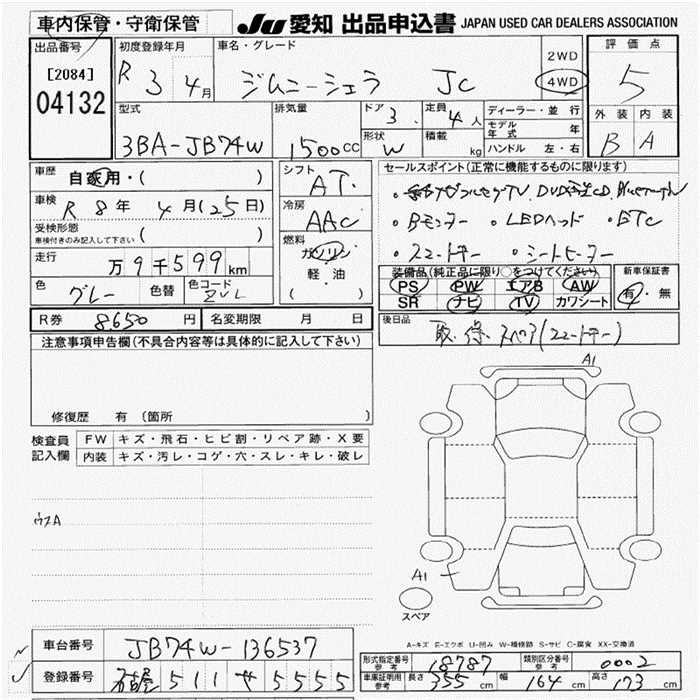 車内保管・守衛保管 JU 愛知 出品申込書 JAPAN USED CAR DEALERS ASSOCIATION
出品番号 [2084] 04132
初度登録年月 R 3 4月
車名・グレード ジムニーシエラ JC
2WD
4WD
評価点 5
外装 B 内装 A
型式 3BA-JB74W
排気量 1500 CC
ドア 3 形状 W
定員 4人 積載 kg
ディーラー・並行
モデル年式 年
ハンドル 左・右
車歴 自家用・( )
車検 R 8年 4月(25日)
受検形態 ( )
車検付きのみ記入して下さい
走行 万9千599km
色 グレー 色替 色コード ZVL
シフト AT
冷房 AAC
燃料 ガソリン
軽・油
( )
セールスポイント(正常に機能するものに限ります)
TV. DVD再生CD. Bluetooth
・Bモニター ・LEDヘッド ・ETC
・スマートキー ・シートヒーター
装備品(純正品に限り○をつけてください)
PS PW エアB AW
SR ナビ TV カワシート
新車保証書
有・無
R券 8650円 名変期限 月 日
後日品 取.保.スペア(スマートキー)
注意事項申告欄(不具合内容等は具体的に記入して下さい)
修復歴 有 (箇所 )
検査員記入欄
FW キズ・飛石・ヒビ割・リペア跡・X要
内装 キズ・汚レ・コゲ・穴・スレ・キレ・破レ
ウスA
A1
A1
スペア
A-キズ E-エクボ U-凹み W-補修跡 S-サビ C-腐食 XX-交換済
車台番号 JB74W-136537
登録番号 名古屋 511 や 5555
形式指定番号 参考 18787 類別区分番号 参考 0002
車庫証明用 参考 長さ 355cm 幅 164cm 高さ 173cm